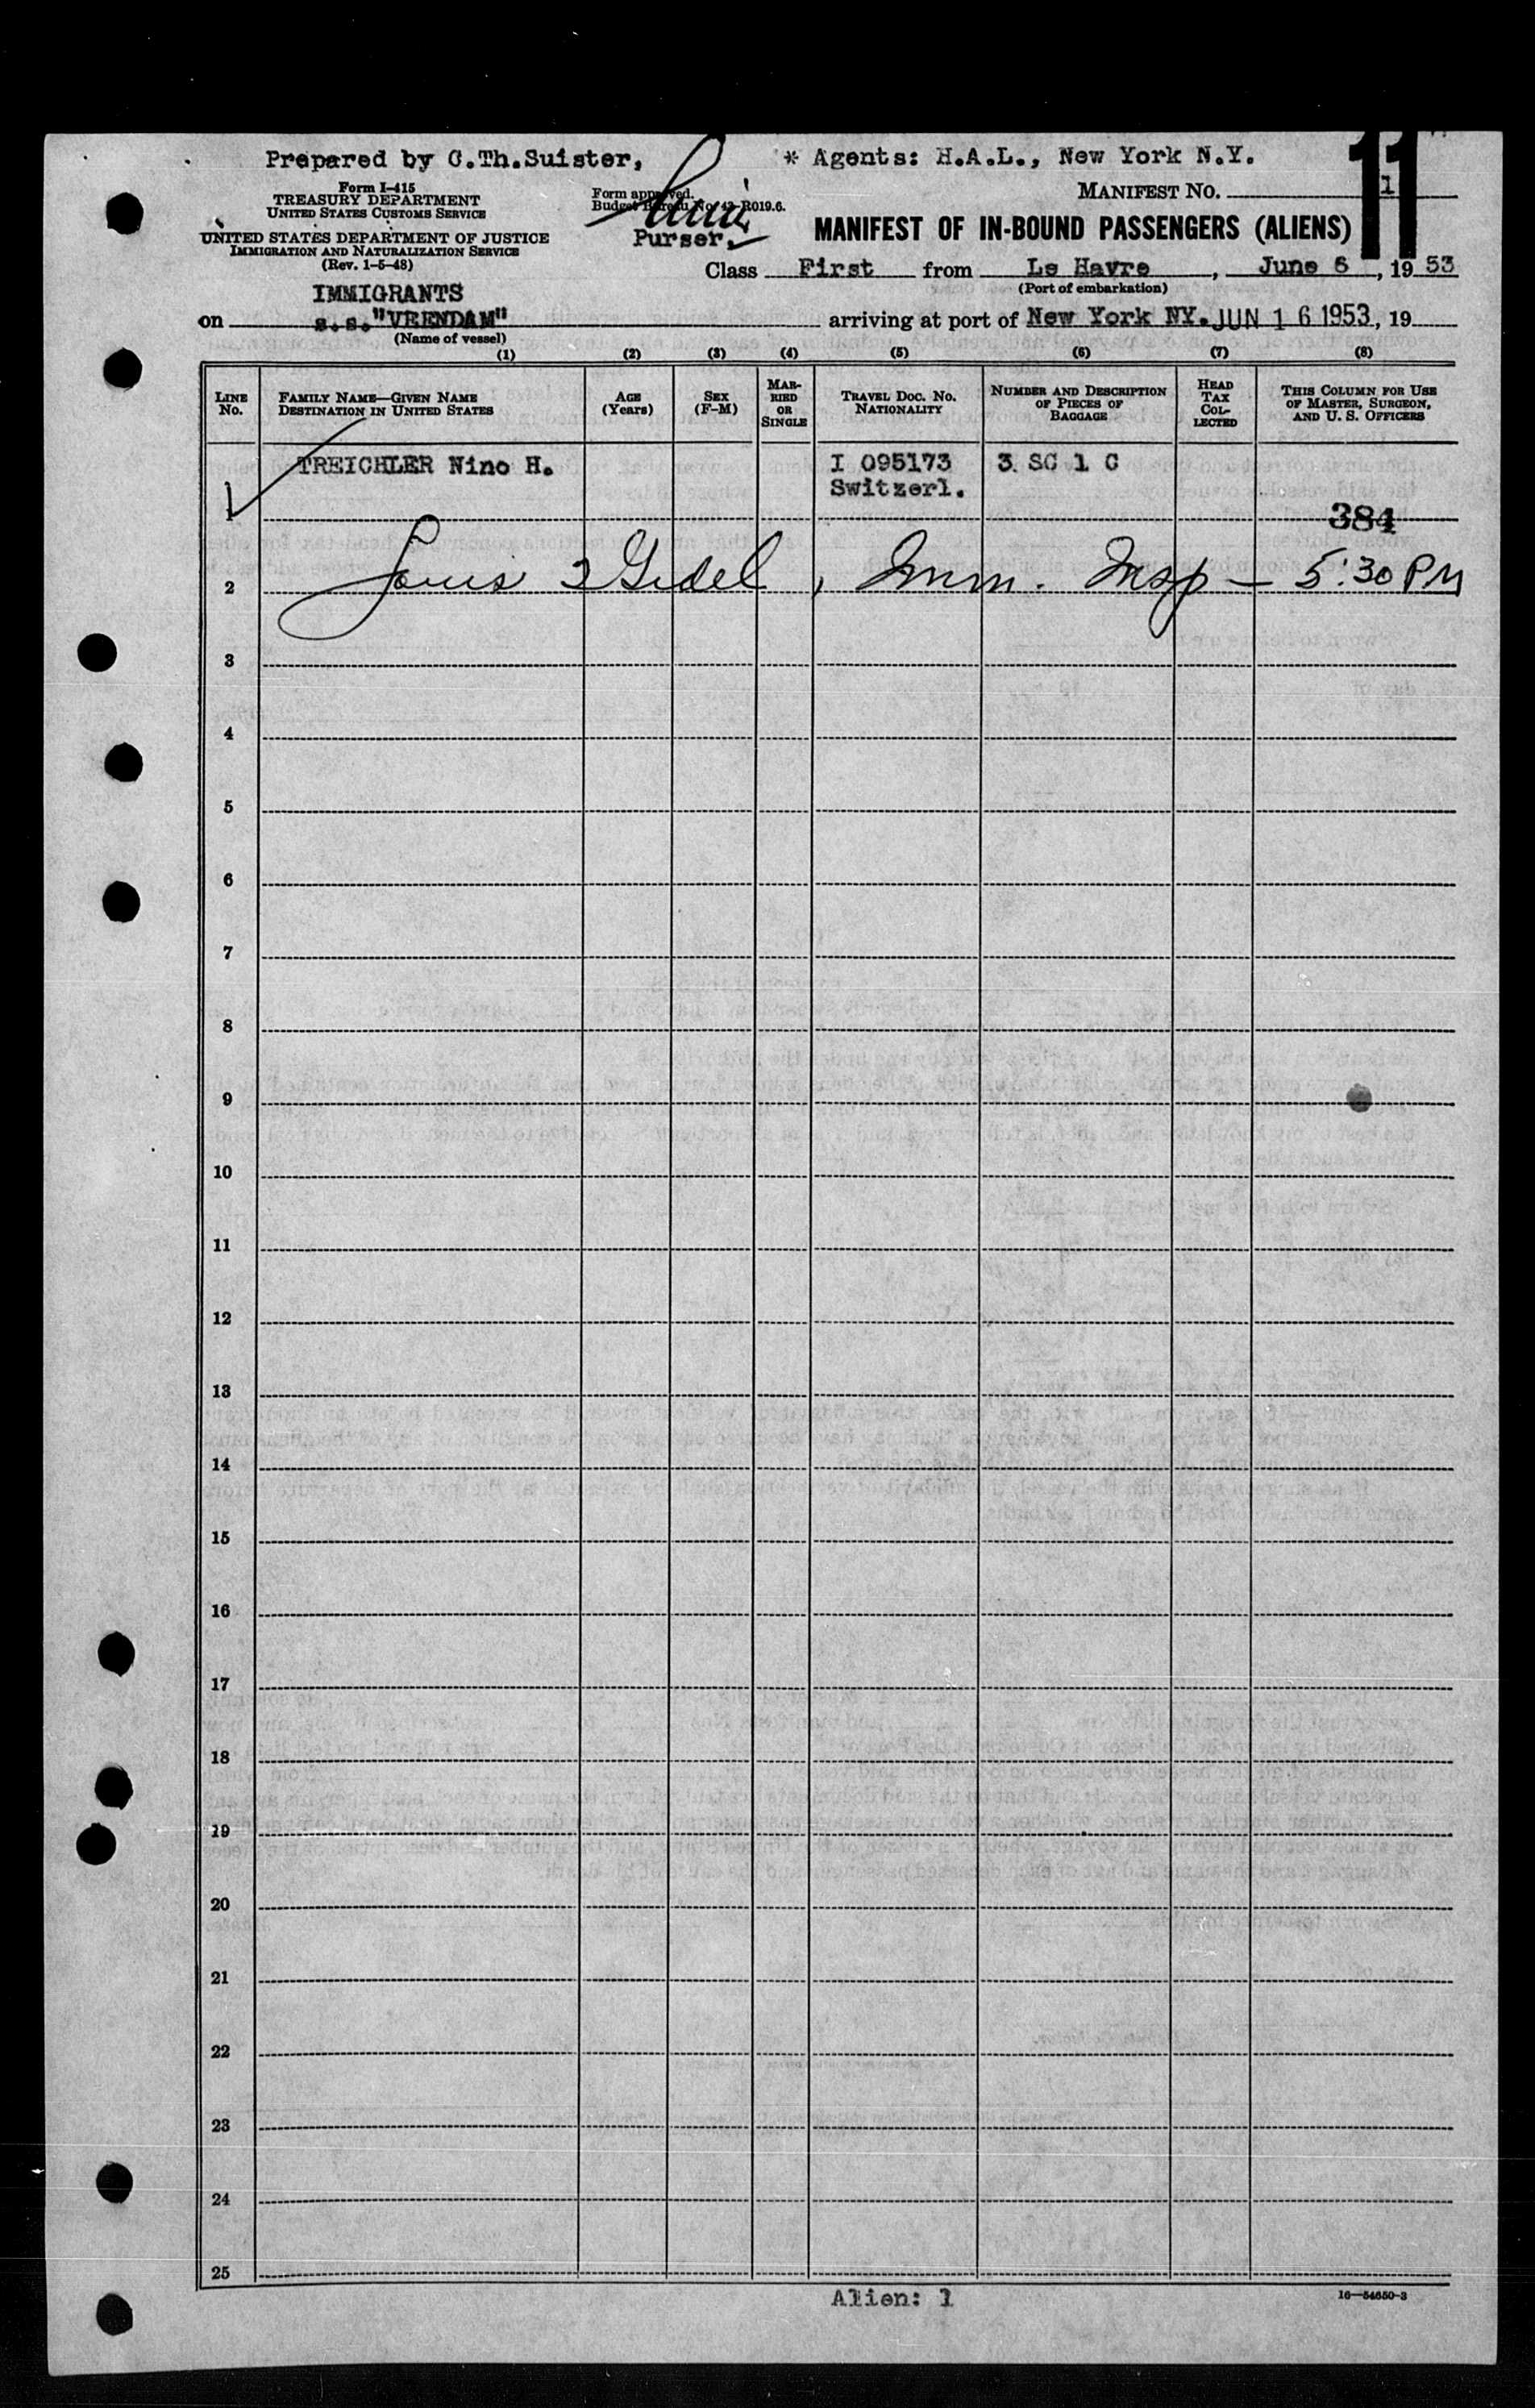 Prepared by C.Th.Suister,
* Agents: H.A.L., New York N.Y.
11
Form I-415
TREASURY DEPARTMENT
UNITED STATES CUSTOMS SERVICE
UNITED STATES DEPARTMENT OF JUSTICE
IMMIGRATION AND NATURALIZATION SERVICE
(Rev. 1-5-48)
Form approved.
Budget Bureau No. 43-R019.6.
Purser.
MANIFEST NO. 1
MANIFEST OF IN-BOUND PASSENGERS (ALIENS)
Class First from Le Havre, June 6, 1953
(Port of embarkation)
IMMIGRANTS
on s.s."VEENDAM" arriving at port of New York NY. JUN 16 1953, 19
(Name of vessel)
(1) (2) (3) (4) (5) (6) (7) (8)
LINE No.
FAMILY NAME—GIVEN NAME
DESTINATION IN UNITED STATES
AGE
(Years)
SEX
(F-M)
MAR-
RIED
OR
SINGLE
TRAVEL DOC. NO.
NATIONALITY
NUMBER AND DESCRIPTION
OF PIECES OF
BAGGAGE
HEAD
TAX
COL-
LECTED
THIS COLUMN FOR USE
OF MASTER, SURGEON,
AND U. S. OFFICERS
TREICHLER Nino H. I 095173 3 SC 1 C
Switzerl.
1
384
2 Louis Gidel, Imm. Insp — 5:30 PM
3
4
5
6
7
8
9
10
11
12
13
14
15
16
17
18
19
20
21
22
23
24
25
Alien: 1
16—54650-3